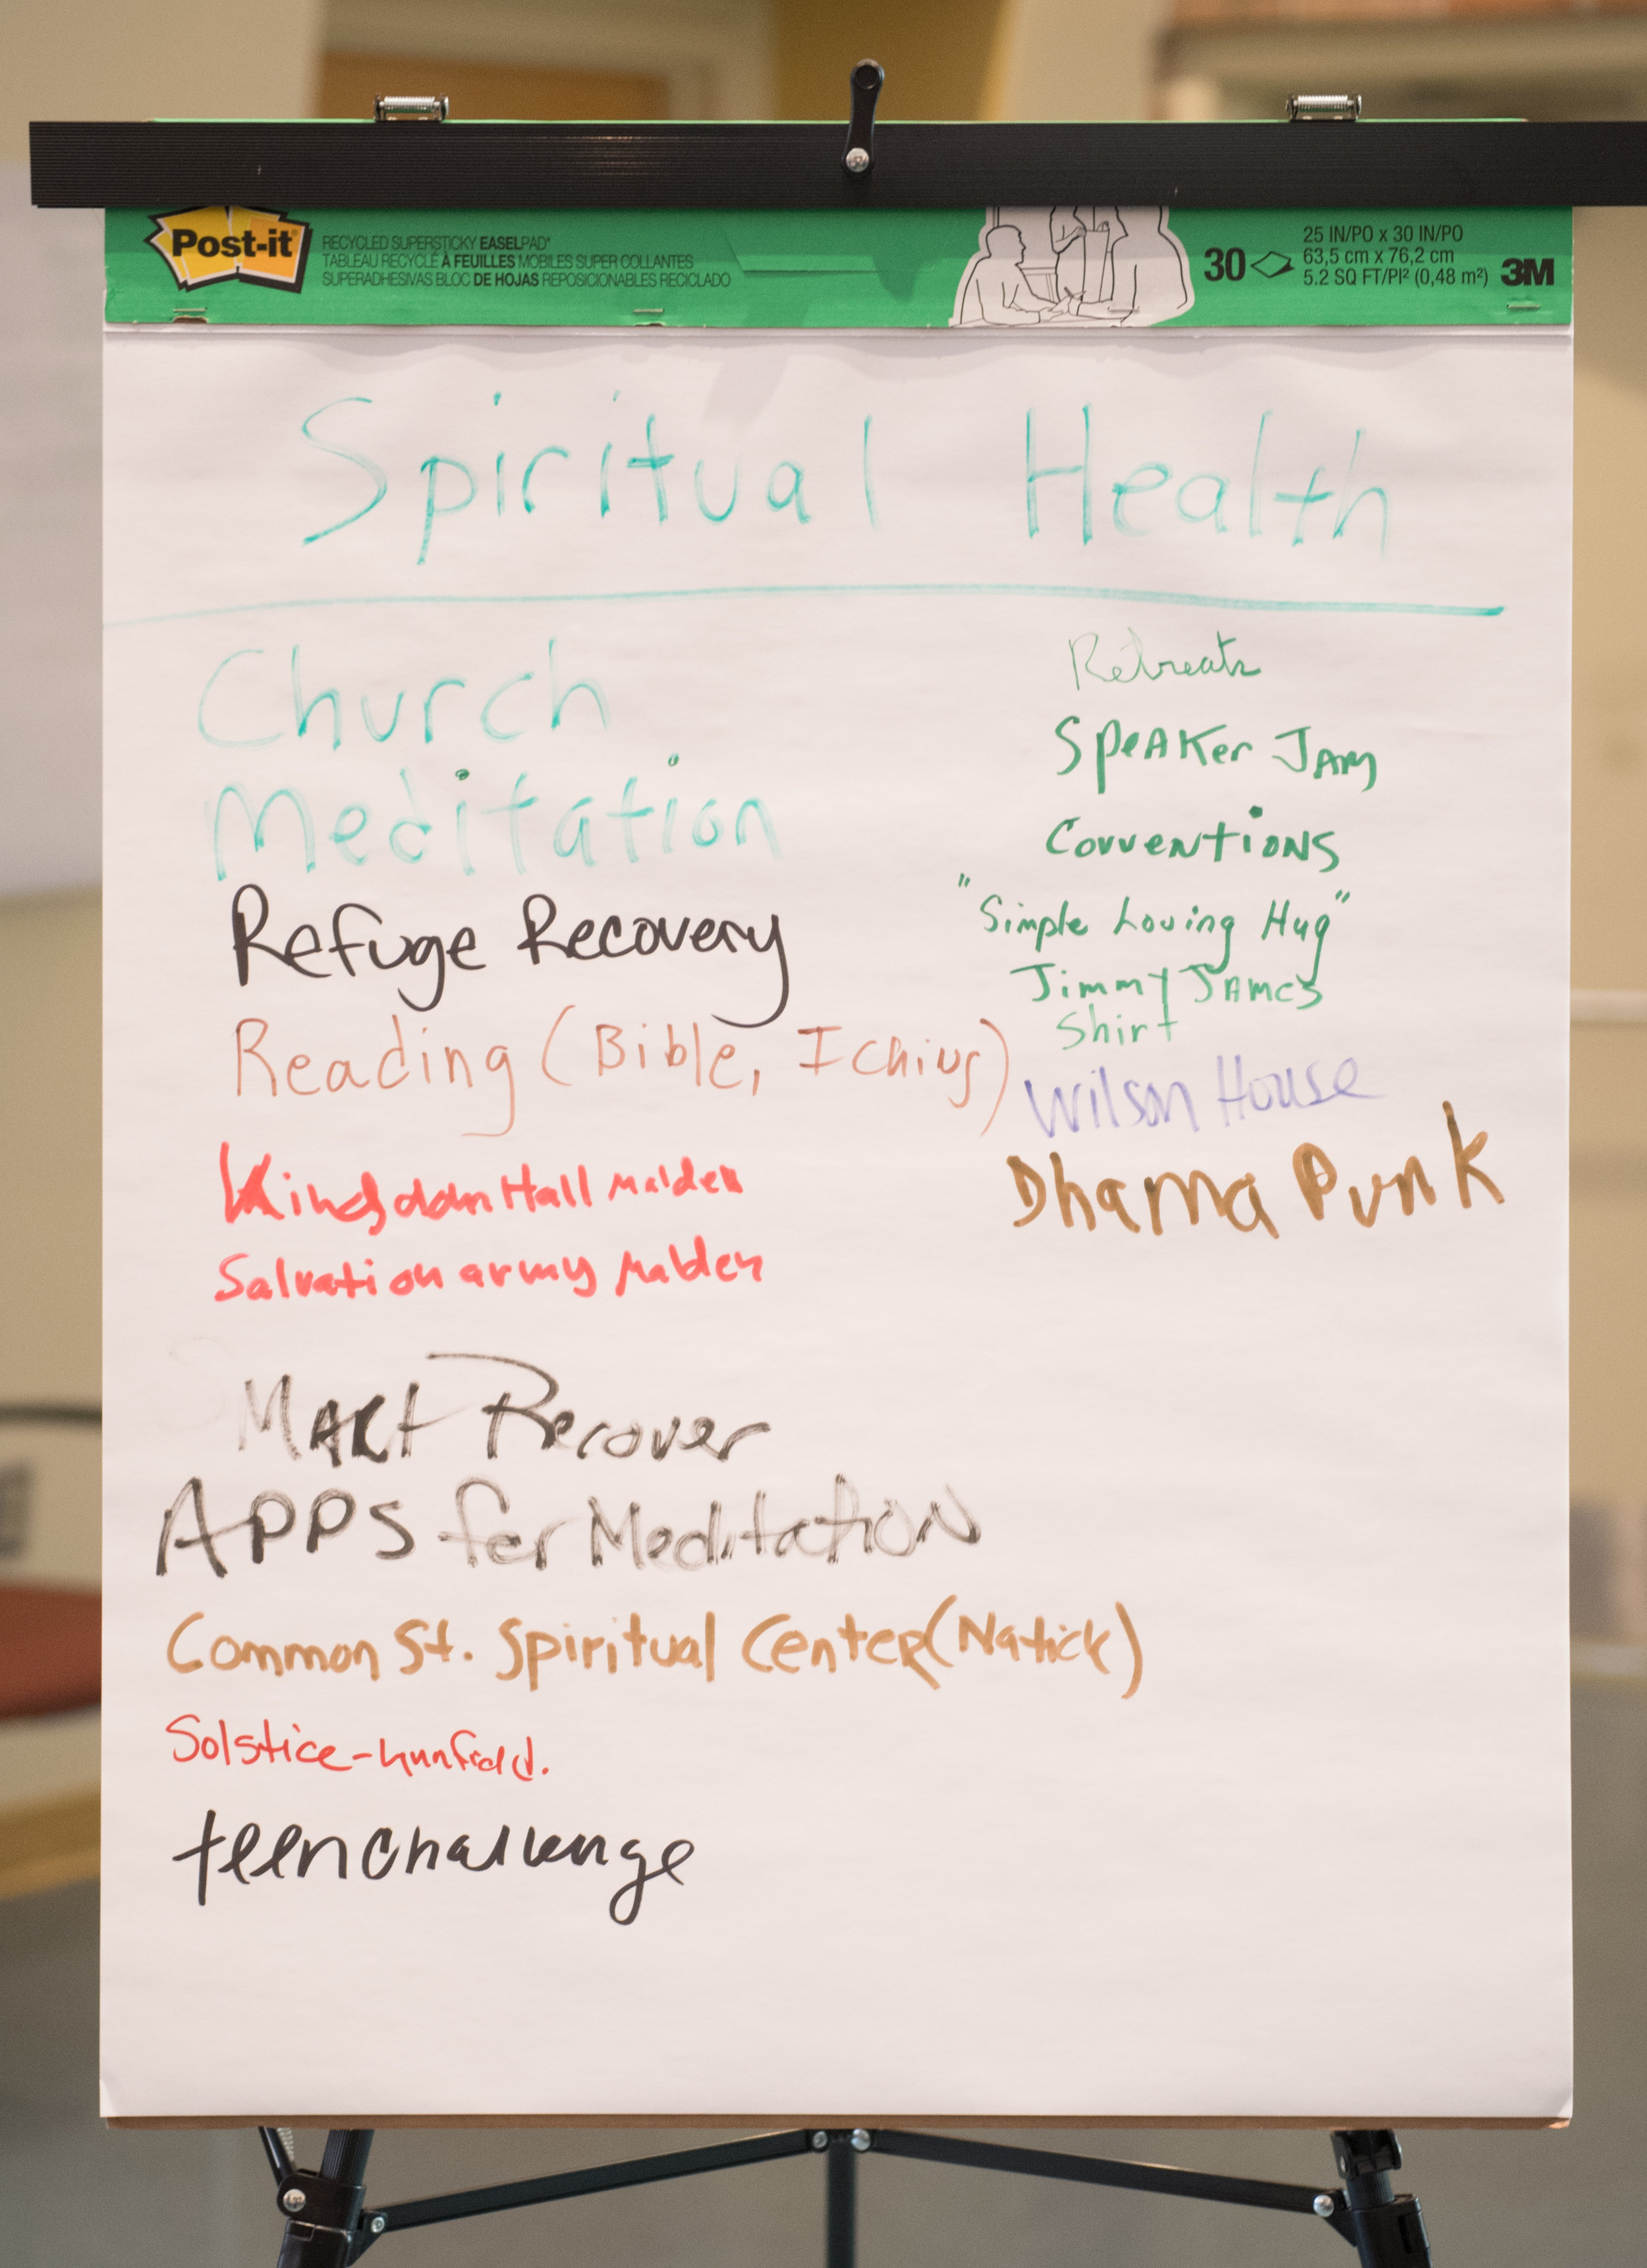 Post-it
RECYCLED SUPERSTICKY EASELPAD*
TABLEAU RECYCLÉ À FEUILLES MOBILES SUPER COLLANTES
SUPERADHESIVAS BLOC DE HOJAS REPOSICIONABLES RECICLADO
30
25 IN/PO x 30 IN/PO
63,5 cm x 76,2 cm
5.2 SQ FT/PI² (0,48 m²)
3M
Spiritual Health
Church
Meditation
Refuge Recovery
Reading (Bible, I Ching)
Kingdom Hall Malden
Salvation army Malden
SMART Recover
APPS for Meditation
Common St. Spiritual Center (Natick)
Solstice-
teen challenge
Retreats
Speaker Jam
Conventions
"Simple Loving Hug"
Jimmy James
Shirt
Wilson House
Dhama Punk